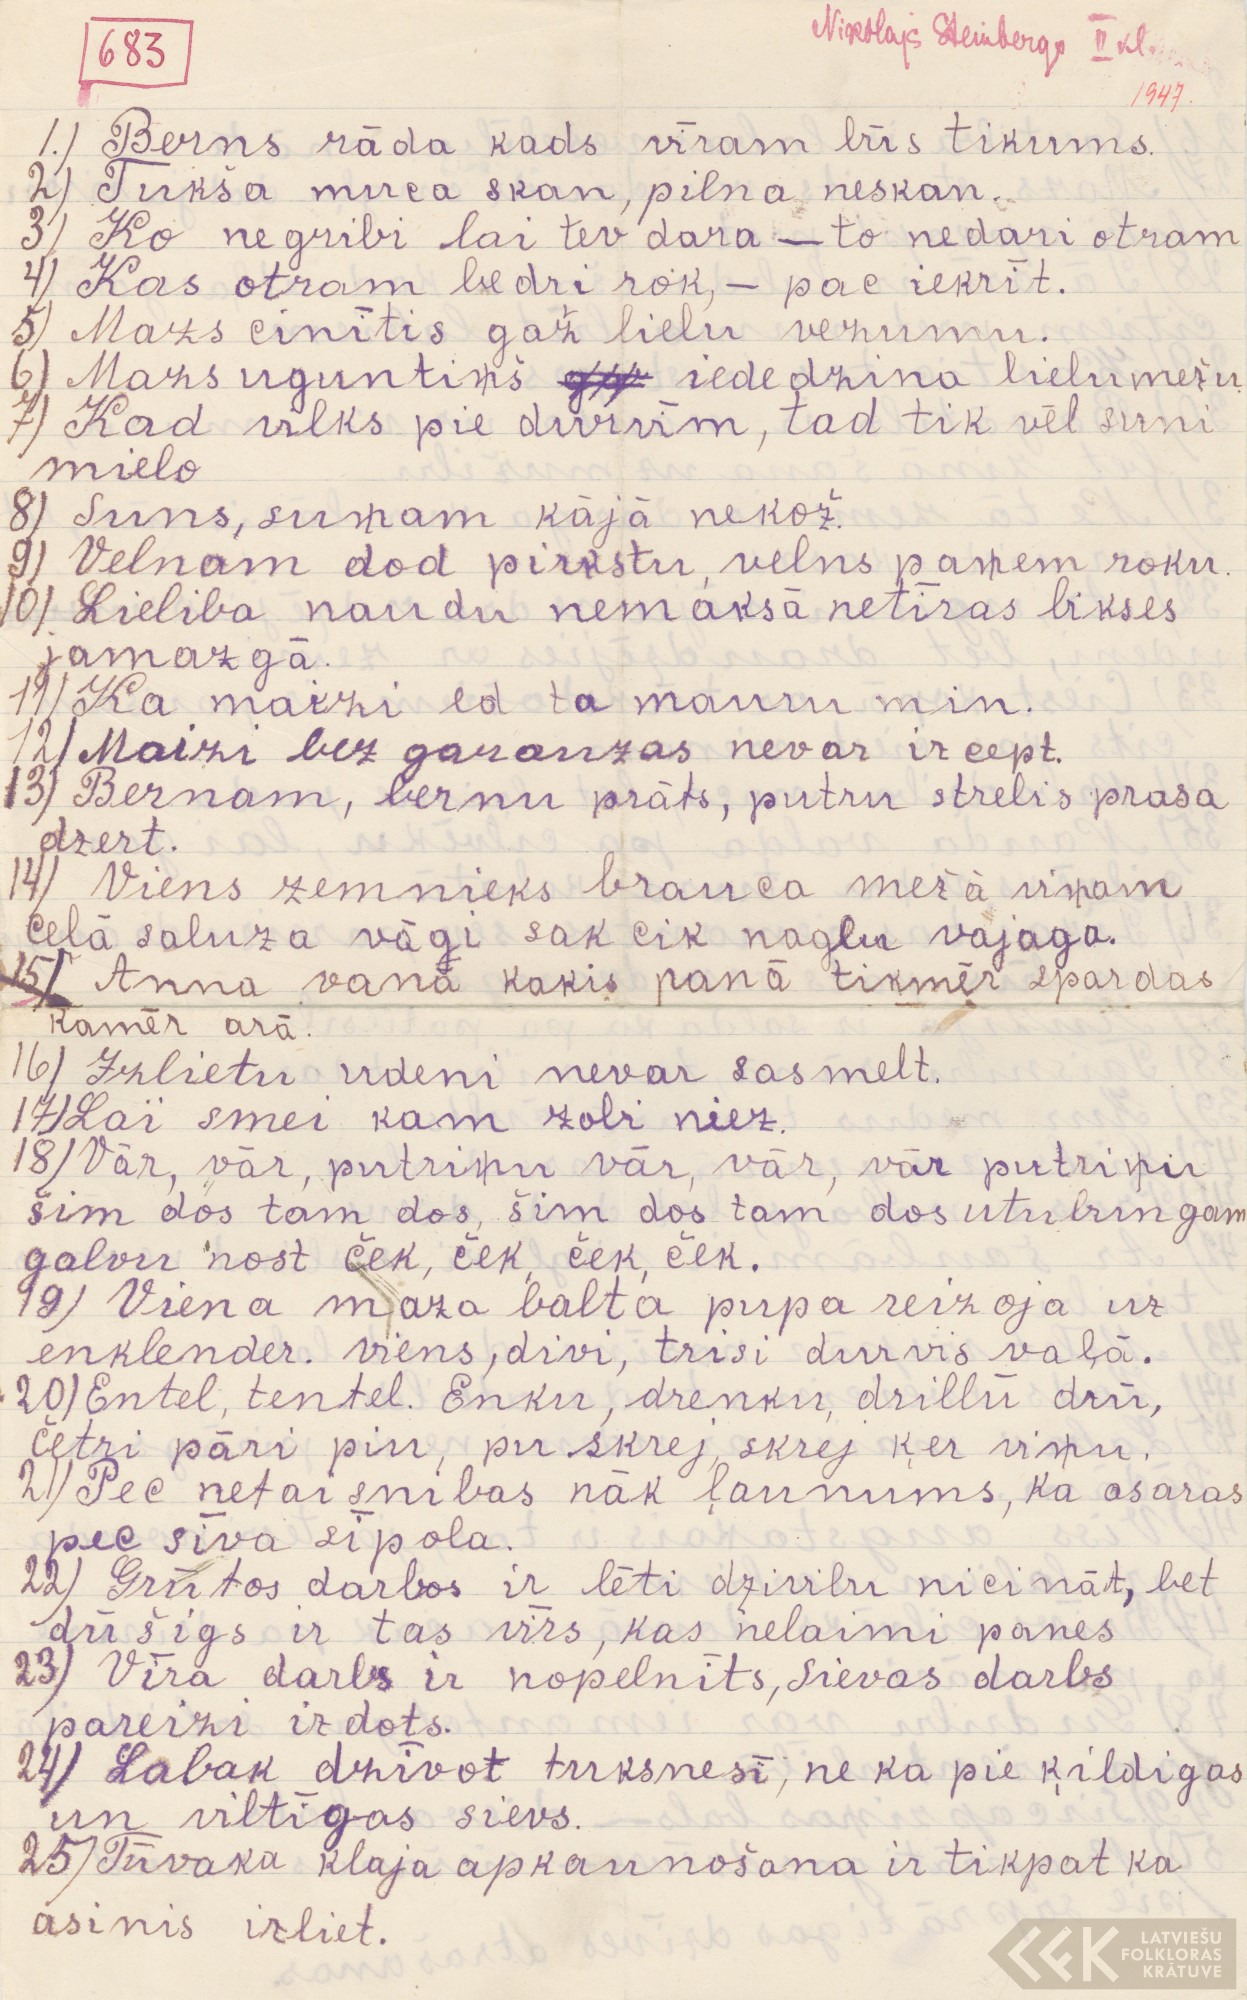 683
Nikolajs Steinbergs II kl.
1947.
1.) Berns rāda kads vīram būs tikums.
2) Tukša muca skan, pilna neskan.
3) Ko negribi lai tev dara — to nedari otram
4) Kas otram bedri rok, — pac iekrīt.
5) Mazs cinītis gaž lielu vezumu.
6) Mazs uguntiņš iededzina lielu mežu.
7) Kad vilks pie durvīm, tad tik vēl suni
mielo
8) Suns, suņam kājā nekož.
9) Velnam dod pirkstu, velns paņem roku.
10) Lieliba naudu nemaksā netīras bikses
jamazgā.
11) Ka maizi ed ta mauru min.
12) Maizi bez garauzas nevar izcept.
13) Bernam, bernu prāts, putru strebis prasa
dzert.
14) Viens zemnieks brauca mežā viņam
ceļā saluza vāgi sak cik naglu vajaga.
15) Anna vanā kakis panā tikmēr spardas
kamēr arā.
16) Izlietu udeni nevar sasmelt.
17) Lai smei kam zobi niez.
18) Vār, vār, putriņu vār, vār, vār putriņu
šim dos tam dos, šim dos tam dos utubungam
galvu nost ček, ček, ček, ček.
19) Viena maza balta pupa reizoja uz
enklender. viens, divi, trisi durvis vaļā.
20) Entel, tentel. Enku, drenku, drillū drū,
četri pāri piu, pu skrej, skrej ķer viņu.
21) Pec netaisnibas nāk ļaunums, ka asaras
pec sīva sīpola.
22) Grūtos darbos ir lēti dzivibu nicināt, bet
dūšigs ir tas vīrs, kas nelaimi panes
23) Vīra darbs ir nopelnīts, sievas darbs
pareizi izdots.
24) Labak dzīvot tuksnesī, ne ka pie ķildigas
un viltīgas sievs.
25) Tūvaka klaja apkaunošana ir tikpat ka
asinis izliet.
LATVIEŠU
FOLKLORAS
KRĀTUVE